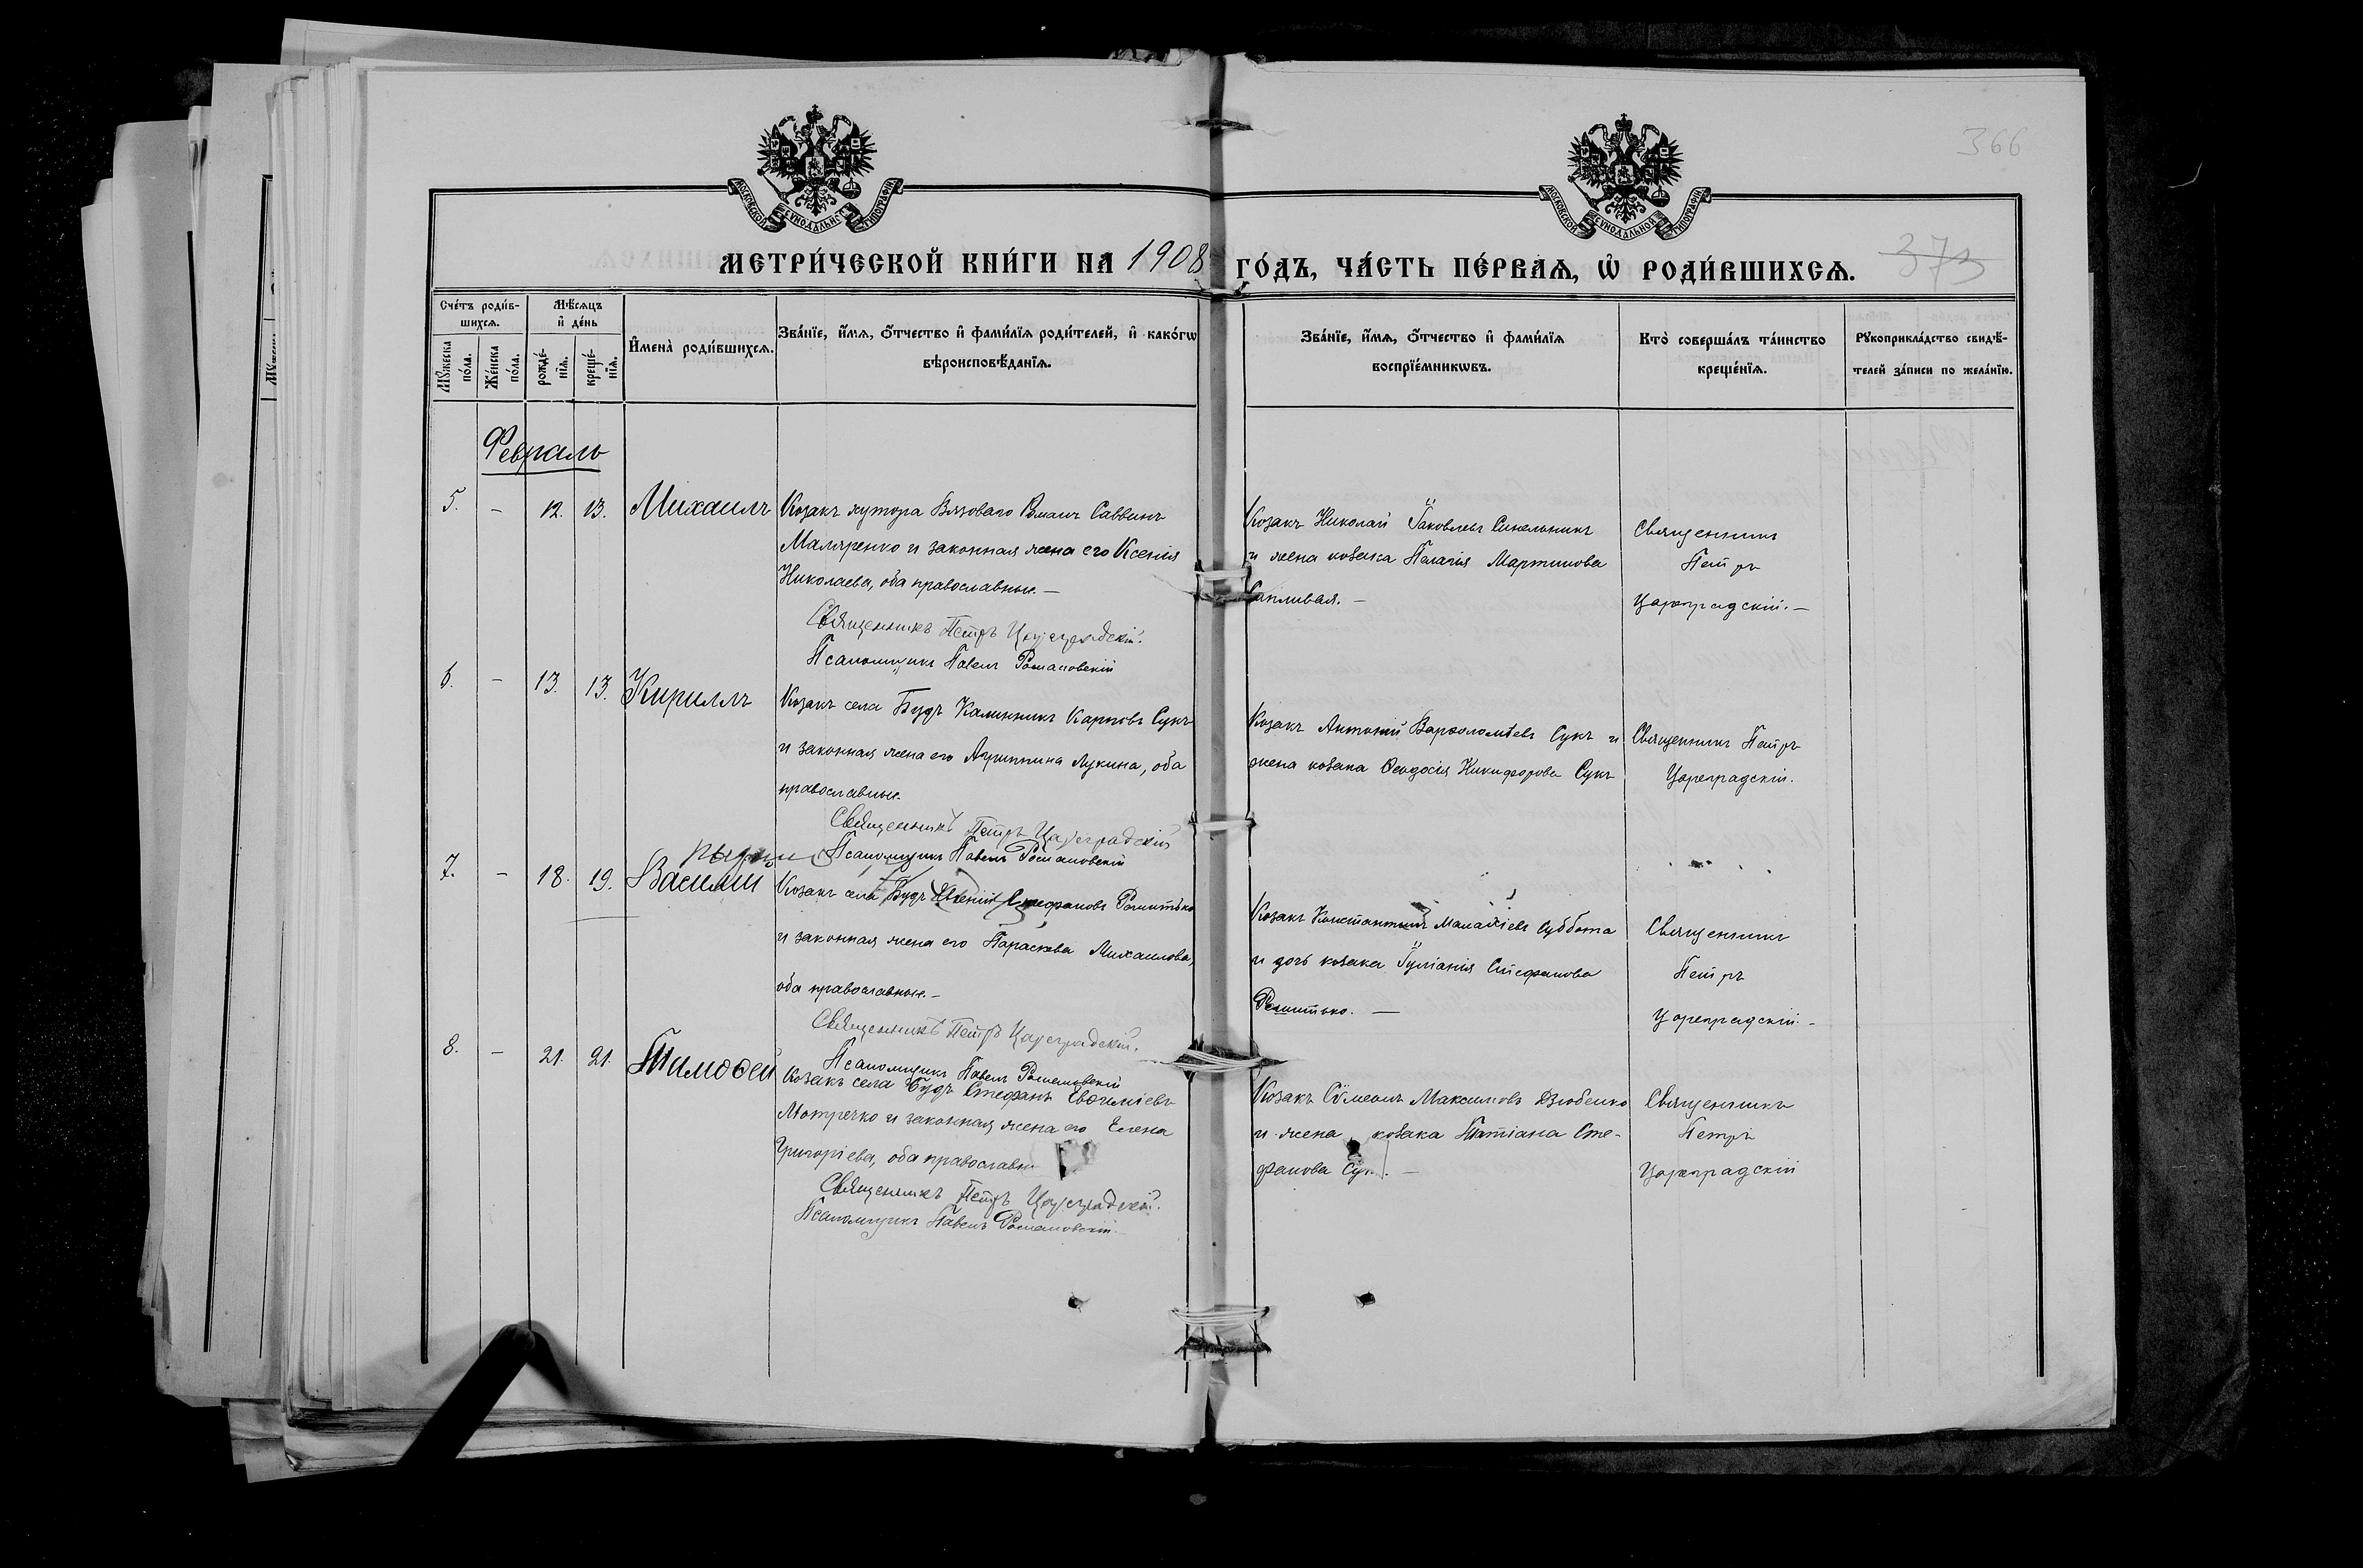 366
МОСКОВСКОЙ СѴНОДАЛЬНОЙ ТИПОГРАФІИ
МОСКОВСКОЙ СѴНОДАЛЬНОЙ ТИПОГРАФІИ
МЕТРИ́ЧЕСКОЙ КНИ́ГИ НА 1908 ГО́ДЪ, ЧА́СТЬ ПЕ́РВАѦ, Ѡ҆ РОДИ́ВШИХСѦ.
373
Сче́тъ роди́в-
шихсѧ.
Мѣ́сѧцъ
и҆ де́нь
Мꙋ́жеска по́ла.
Же́нска по́ла.
рожде́-
нїѧ.
креще́-
нїѧ.
И҆мена̀ роди́вшихсѧ.
Зва́нїе, и҆́мѧ, ѻ҆́тчество и҆ фами́лїѧ роди́телей, и҆ како́гѡ
вѣроисповѣ́данїѧ.
Зва́нїе, и҆́мѧ, ѻ҆́тчество и҆ фами́лїѧ
воспрїе́мникѡвъ.
Кто̀ соверша́лъ та́инство
креще́нїѧ.
Рꙋкоприкла́дство свидѣ́-
телей за́писи по жела́нїю.
Февраль
5. - 12. 13. Михаилъ
Козакъ хутора Вязоваго Романъ Саввинъ
Маляренко и законная жена его Ксенія
Николаева, оба православные. —
Священникъ Петръ Цареградскій.
Псаломщикъ Павелъ Романовскій
Козакъ Николай Іаковлевъ Синельникъ
и жена козака Пелагія Мартинова
Священникъ
Петръ
Цареградскій. —
6. - 13. 13. Кириллъ
Козакъ села Будъ Калинникъ Карповъ Сукъ
и законная жена его Агриппина Лукина, оба
православные.
Священникъ Петръ Цареградскій
Псаломщикъ Павелъ Романовскій
Козакъ Антоній Варѳоломѣевъ Сукъ и
жена козака Ѳеодосія Никифорова Сукъ
Священникъ Петръ
Цареградскій.
7. - 18. 19. Василій
Козакъ села Будъ Стефановъ
и законная жена его Параскева Михаилова,
оба православные. —
Священникъ Петръ Цареградскій.
Псаломщикъ Павелъ Романовскій
Козакъ Константинъ Суббота
и дочь козака Іуліанія Стефанова
Священникъ
Петръ
Цареградскій. -
8. - 21. 21. Тимоѳей
Козакъ села Будъ Стефанъ Евѳиміевъ
Мотречко и законная жена его Елена
Григоріева, оба православны
Священникъ Петръ Цареградскій.
Псаломщикъ Павелъ Романовскій
Козакъ Сѵмеонъ Максимовъ Дзюбенко
и жена козака Татіана Сте-
фанова
Священникъ
Петръ
Цареградскій